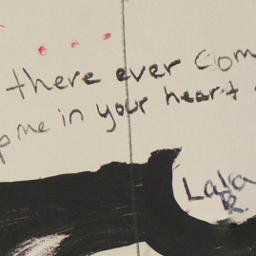 there ever com
me in your heart
Lala
R